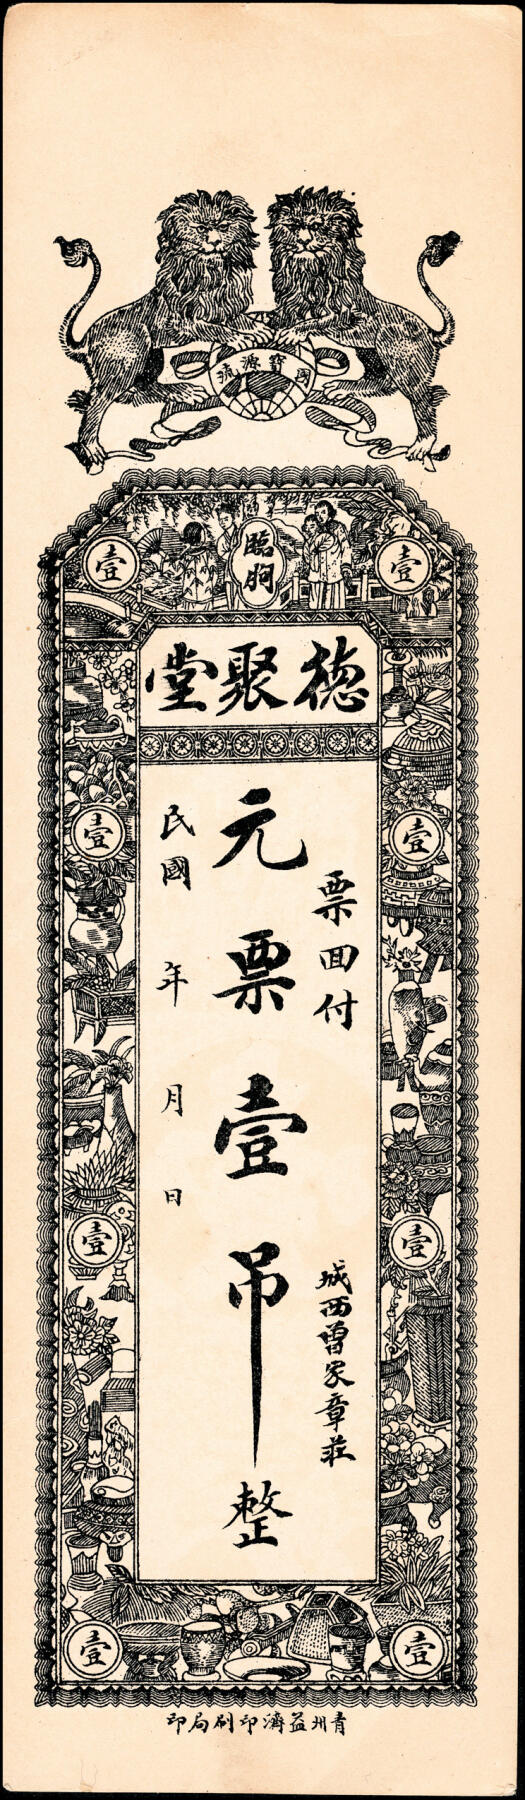 國寶源流
臨朐
壹 壹
德聚堂
票回付
城西曾家章莊
元票壹吊整
民國 年 月 日
壹 壹
壹 壹
壹 壹
青州益濟印刷局印